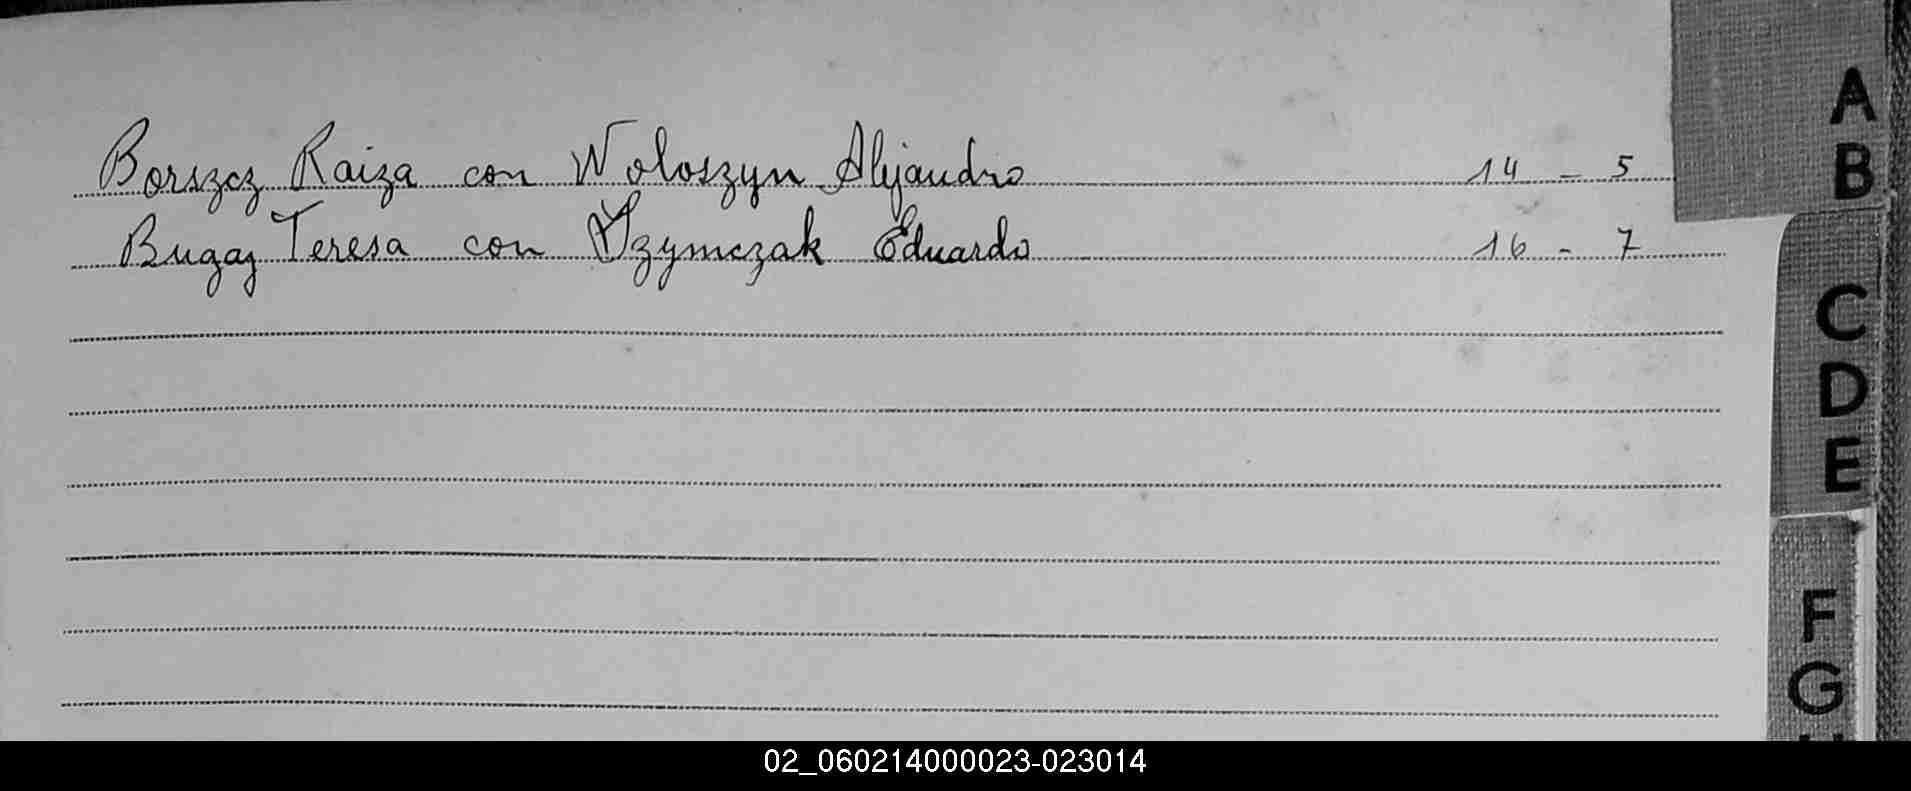 A
B
Borszcz Raiza con Woloszyn Alejandro 14 - 5
Bugaj Teresa con Szymczak Eduardo 16 - 7
C
D
E
F
G
02_060214000023-023014